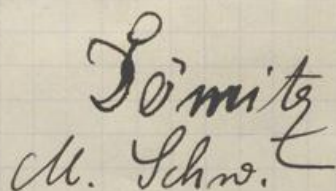 Dömitz
M. Schw.